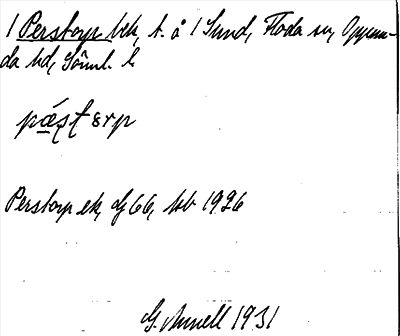 1 Perstorp bek, t. å 1 Sund, Floda sn, Oppun-
da hd, Söml. l.
pǽʂʈɛrp
Perstorp ek, dj 66, bl 1926
G. Annell 1931